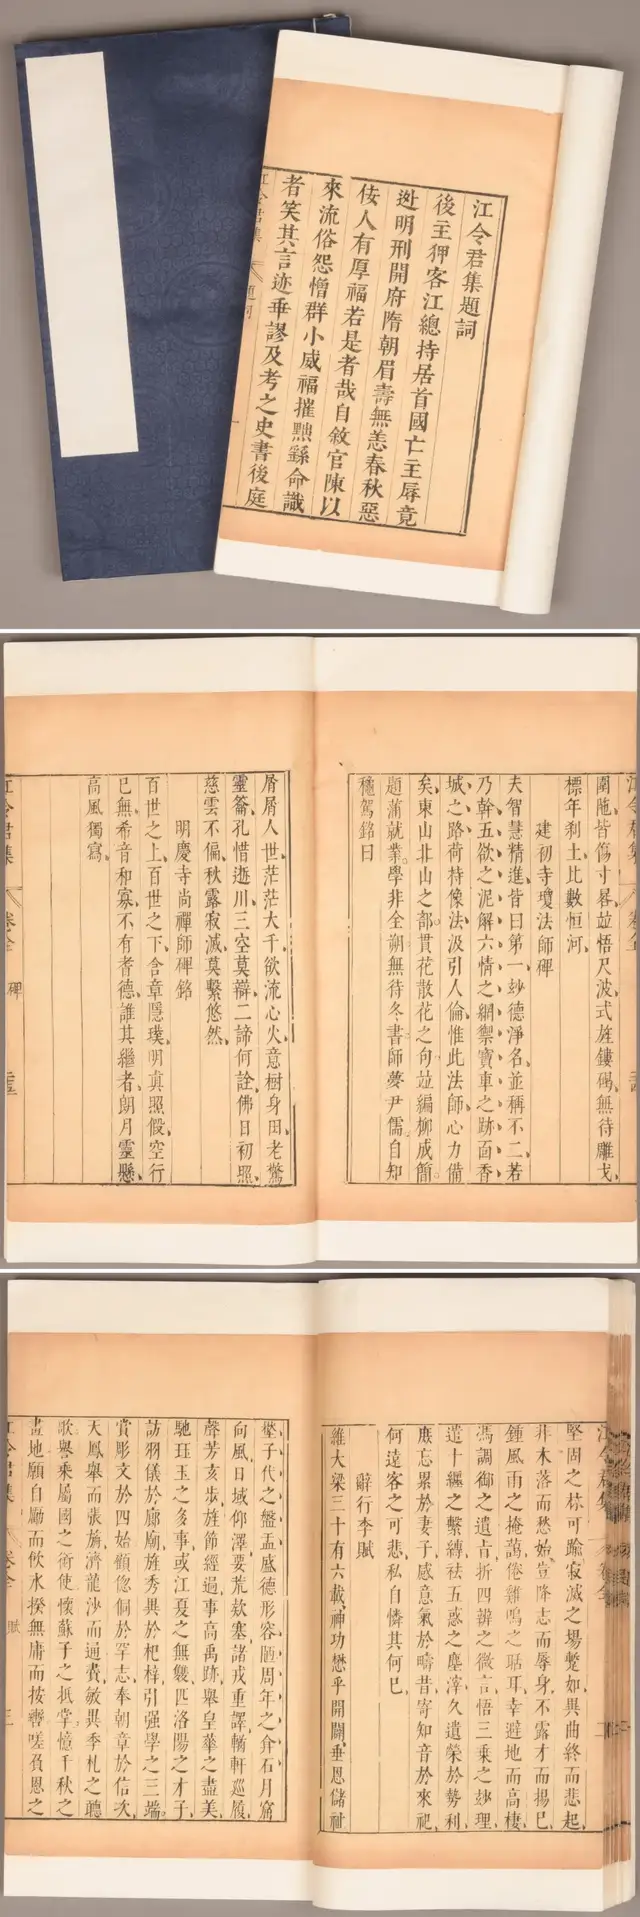 江令君集題詞
後主狎客江總持居首國亡主辱竟
逃明刑開府隋朝眉壽無恙春秋惡
佞人有厚福若是者哉自敘官陳以
來流俗怨憎群小威福摧黜繇命識
者笑其言迹乖謬及考之史書後庭
江令君集
題詞
一
江令君集 卷全
圍陁皆傷寸晷竝悟尺波式旌鏤碣無待雕戈
標年刹土比數恒河
建初寺瓊法師碑
夫智慧精進皆曰第一玅德淨名並稱不二若
乃幹五欲之泥解六情之網禦寶車之跡面香
城之路荷持像法汲引人倫惟此法師心力備
矣東山北山之部貫花散花之句竝編柳成簡
題蒲就業學非全朔無待冬書師夢尹儒自知
穐駕銘曰
屑屑人世茫茫大千欲流心火意樹身田老驚
靈籥孔惜逝川三空莫辯二諦何詮佛日初照
慈雲不偏秋露寂滅莫繫悠然
明慶寺尚禪師碑銘
百世之上百世之下含章隱璞明真照假空行
已無希音和寡不有耆德誰其繼者朗月靈懸
高風獨寫
江令君集
卷全
碑
江令君集
卷全
堅固之林可踰寂滅之場蹔如異曲終而悲起
非木落而愁始豈降志而辱身不露才而揚已
鍾風雨之掩藹倦雞鳴之聒耳幸避地而高棲
馮調御之遺旨折四辨之微言悟三乗之玅理
遣十纏之繫縛祛五惑之塵滓久遺榮於勢利
庶忘累於妻子感意氣於疇昔寄知音於來祀
何遠客之可悲私自憐其何巳
辭行李賦
維大梁三十有六載神功懋乎開闢垂恩儲祉
孽子代之盤盂盛德形容陋周年之弇石月窟
向風日域仰澤要荒欵塞諸戎重譯輶軒巡履
聲芳亥步旌節經過事高禹跡舉皇華之盡美
馳珏玉之多事或江夏之無雙匹洛陽之才子
訪羽儀於廊廟旌秀異於杞梓引强學之三端
賞彫文於四始顧倥侗於罕志奉朝章於信次
天鳳舉而張旃濟龍沙而通賮敏異季札之聽
歌譽乗屬國之銜使懷蘇子之抵掌憶千秋之
畫地願自勵而飲水揆無庸而按轡嗟負恩之
江令君集
卷全
賦
三